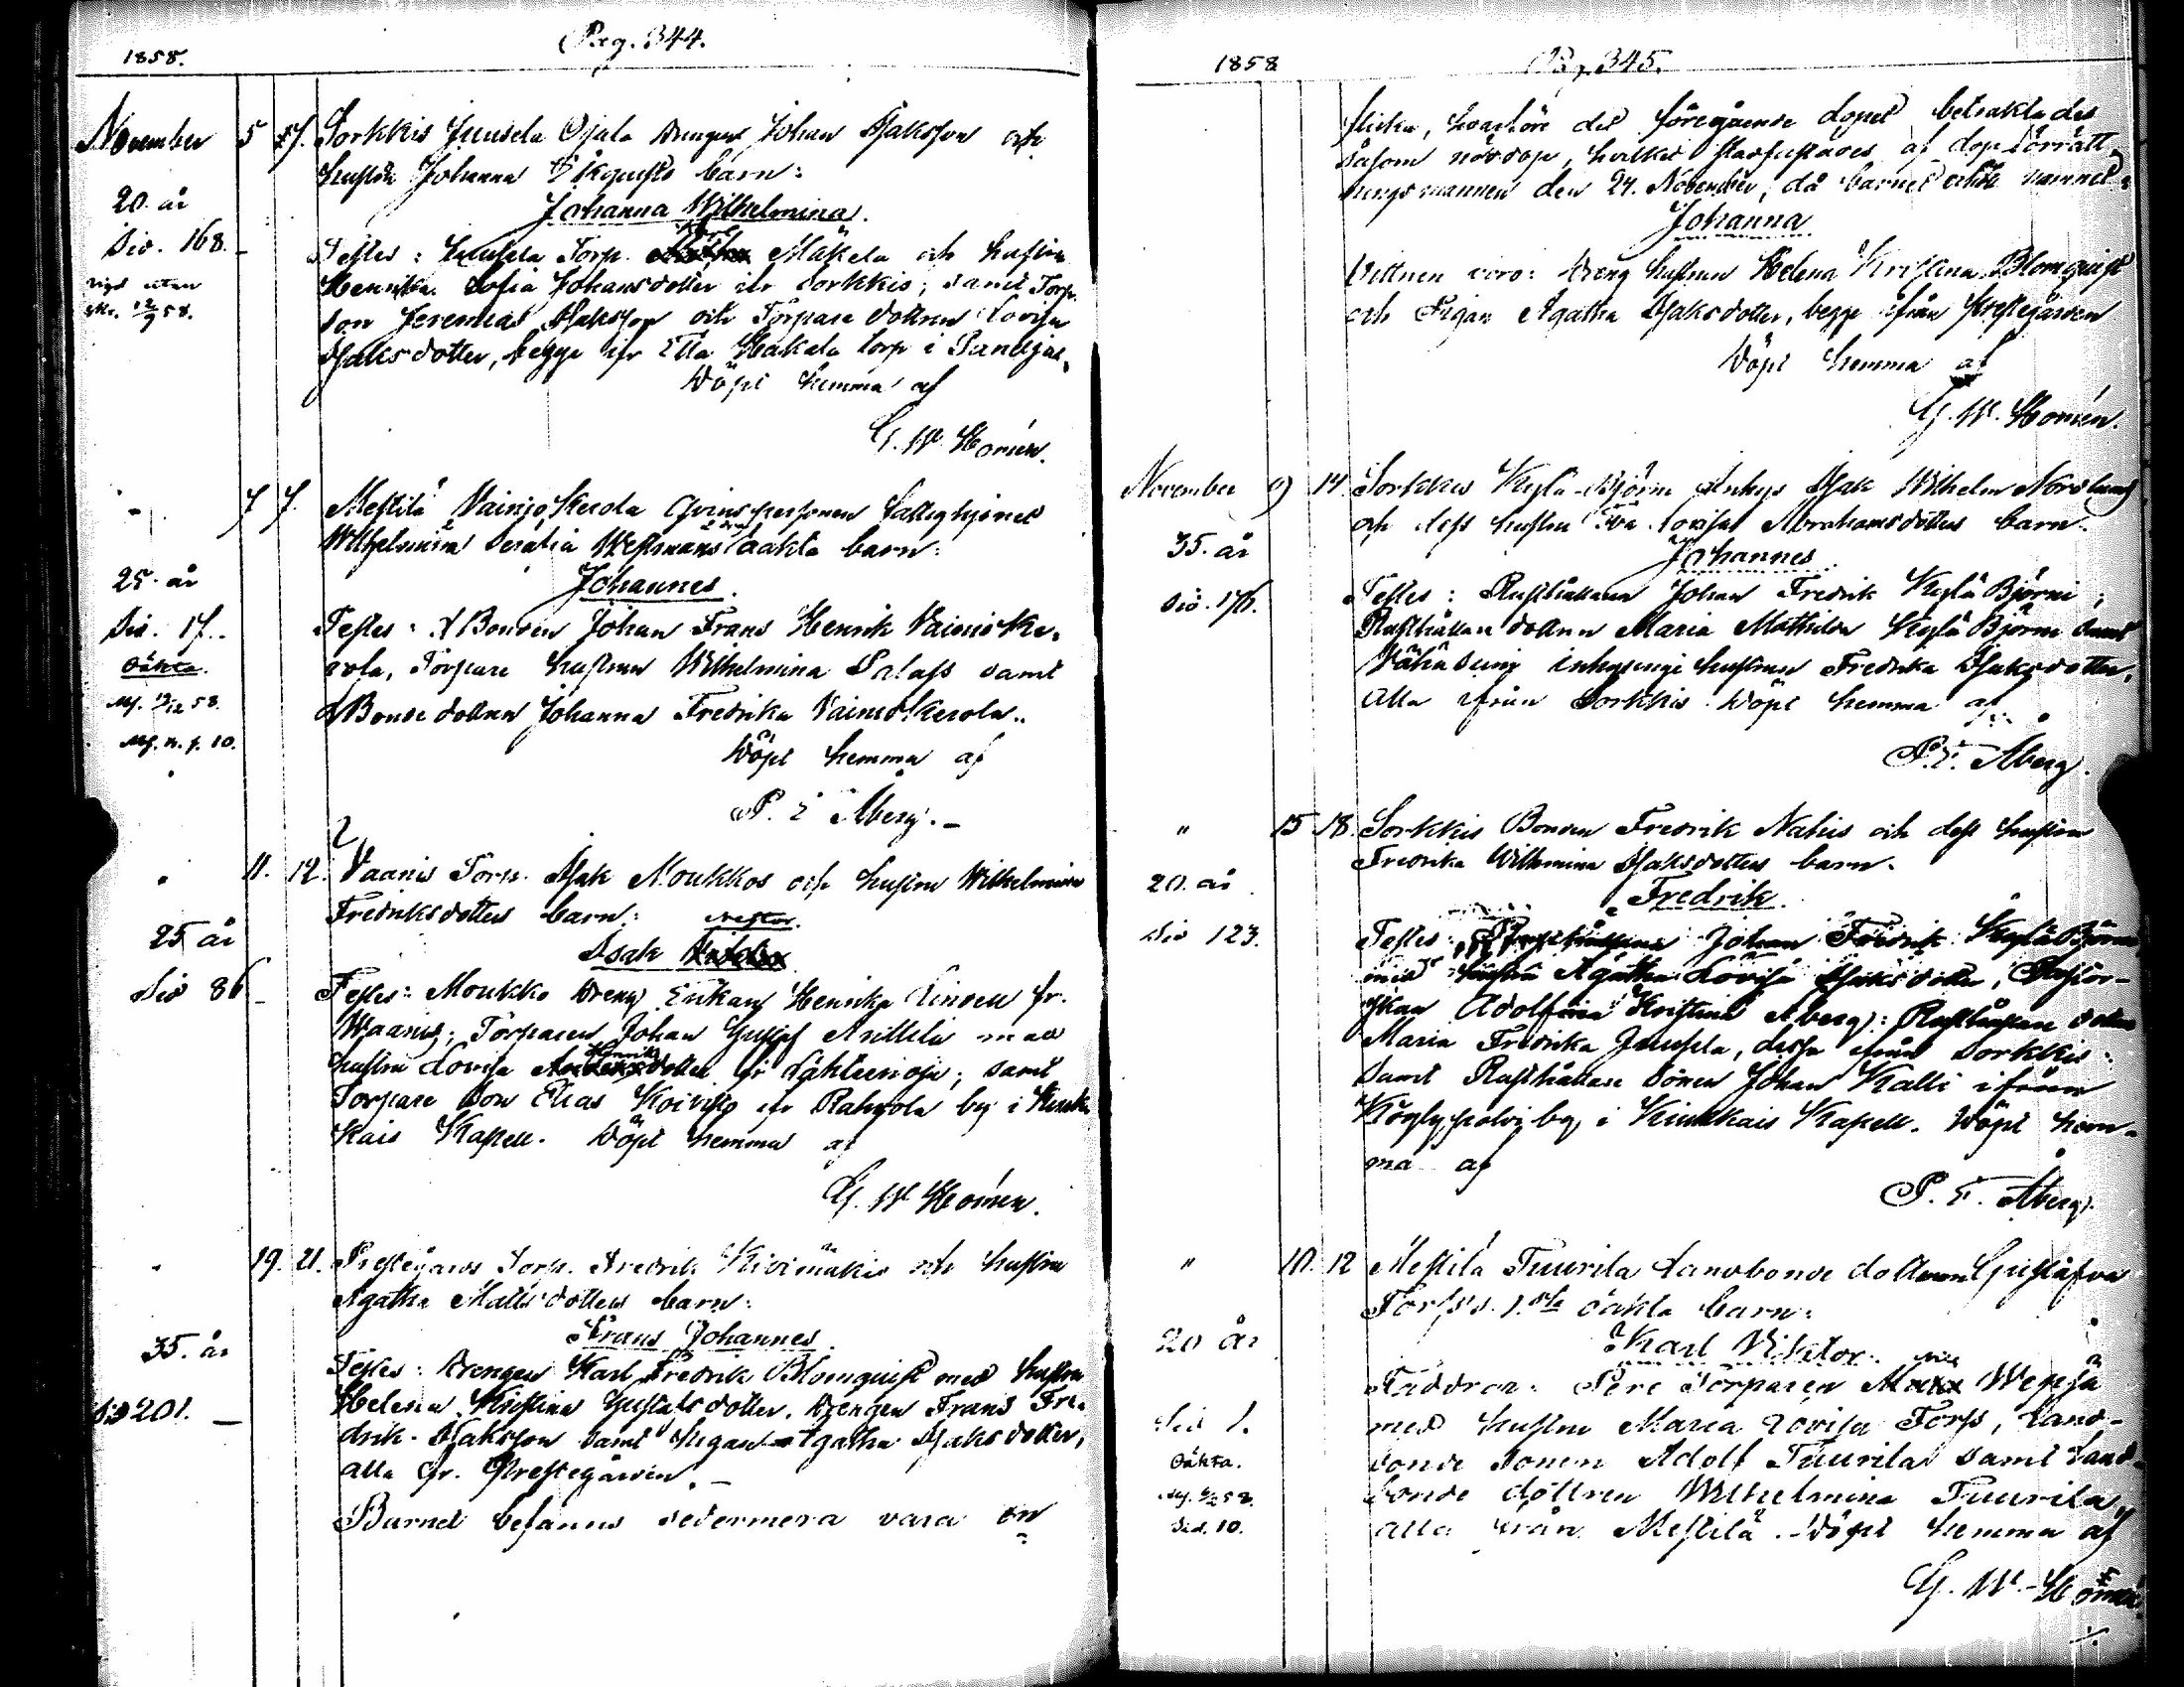 1858.
Pag. 344.
November 5 7. Sorkkis Juusela Ojala drängens Johan Isaksson och
hustru Johanna barn:
Johanna Wilhelmina.
20 år
Sid. 168.
Testes: Juusela Torp. Mäkelä och hustru
Henrika Sofia Johansdotter ifr Sorkkis; samt Torp.
son Jeremias Isaksson och Torpare dottren Lovisa
Isaksdotter, begge ifr Eila Häkälä torp i
Döpt hemma af
G. W. Homén.
7 7. Mestilä Vainio Kerola qvinspersonen fattighjonet
Wilhelmina Serafia Westmans oäkta barn:
Johannes.
25 år
Sid. 17.
Oäkta.
Testes: Bonden Johan Frans Henrik Vainio Ke-
rola, Torpare hustrun Wilhelmina Salass samt
Bonde dottren Johanna Fredrika Vainio Kerola.
Döpt hemma af
P. E. Åberg.
11. 12. Vaanis Torp. Isak Moukkos och hustru Wilhelmina
Fredriksdotters barn:
Nestor.
Isak
25 år
Sid 86
Testes: Moukko dreng Enkan Henrika Lindell fr.
Waanis; Torparen Johan Gustaf Anttila med
hustru Lovisa Henriksdotter fr Lähteenoja; samt
Torpare son Elias Koivisto ifr Rahvola by i Kiuka
Kais Kapell. Döpt hemma af
G. W Homén.
19. 21. Prestgårds Torp. Fredrik Kivimäkis och hustru
Agatha Mattsdotters barn:
Frans Johannes.
35. år
Sid 201.
Testes: Drengen Karl Fredrik Blomquist med hustru
Helena Kristina Gustafsdotter. Drengen Frans Fre-
drik Isaksson samt pigan Agatha Isaksdotter,
alla fr. Prestegården.
Barnet befanns sedermera vara en
1858
Pag. 345.
flicka, hvarföre det föregående dopet betraktades
såsom nöddop, hvilket stadfästades af dopförrätt-
ningsmannen den 24. November, då barnet erhöll namnet:
Johanna
Vittnen voro: Dreng hustrun Helena Kristina Blomquist
och Pigan Agatha Isaksdotter, begge ifrån Prestegården
Döpt hemma af
G. W. Homén.
November 9 14 Sorkkis Kylä-Björni Inhys Isak Wilhelm Nordlunds
och dess hustru Eva Lovisa Abrahamsdotters barn.
Johannes
35. år
Sid. 176.
Testes: Rusthållaren Johan Fredrik Kylä Björni;
Rusthållare dottren Maria Mathilda Kylä Björni samt
inhysinge hustrun Fredrika Isaksdotter,
alla ifrån Sorkkis. Döpt hemma af
P. E. Åberg.
" 15 18. Sorkkis Bonden Fredrik Nahis och dess hustru
Fredrika Wilhmina Isaksdotters barn.
Fredrik.
20. år
Sid 123.
Testes: Johan Fredrik Kylä Björni
med hustru Agatha Lovisa Isaksdotter,
Adolfina Kristina Åberg; Rusthållare dottren
Maria Fredrika Juusela, dessa ifrån Sorkkis:
samt Rusthållare sonen Johan Kalli ifrån
Köylypolvi by i Kiukkais Kapell. Döpt hem-
ma af
P. E. Åberg.
" 10. 12 Mestilä Tuurila Landbonde dottren Gustafva
Forss's 1.sta oäkta barn:
Karl Viktor.
20 år
Sid 1.
Oäkta.
Sid. 10.
Faddrar: Pere Torparen Weppä
med hustru Maria Lovisa Forss, Land-
bonde sonen Adolf Tuurila samt Land-
bonde döttren Wilhelmina Tuurila,
alla från Mestilä. Döpt hemma af
G. W. Homén